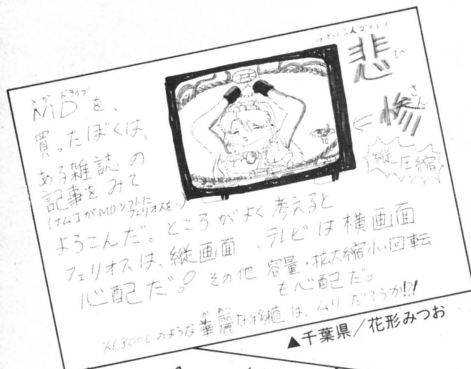 悲惨
ひ
さん
縦圧縮
メガ ドライブ
MDを、
買ったぼくは、
ある雑誌の
記事をみて
(ナムコがMDソフトにフェリオスを…)
よろこんだ。ところがよく考えると
フェリオスは、縦画面、テレビは横画面
心配だ!その他 容量・拡大縮小・回転
も心配だ。
のような華麗な移植は、ムリだろうか!!!
▲千葉県/花形みつお